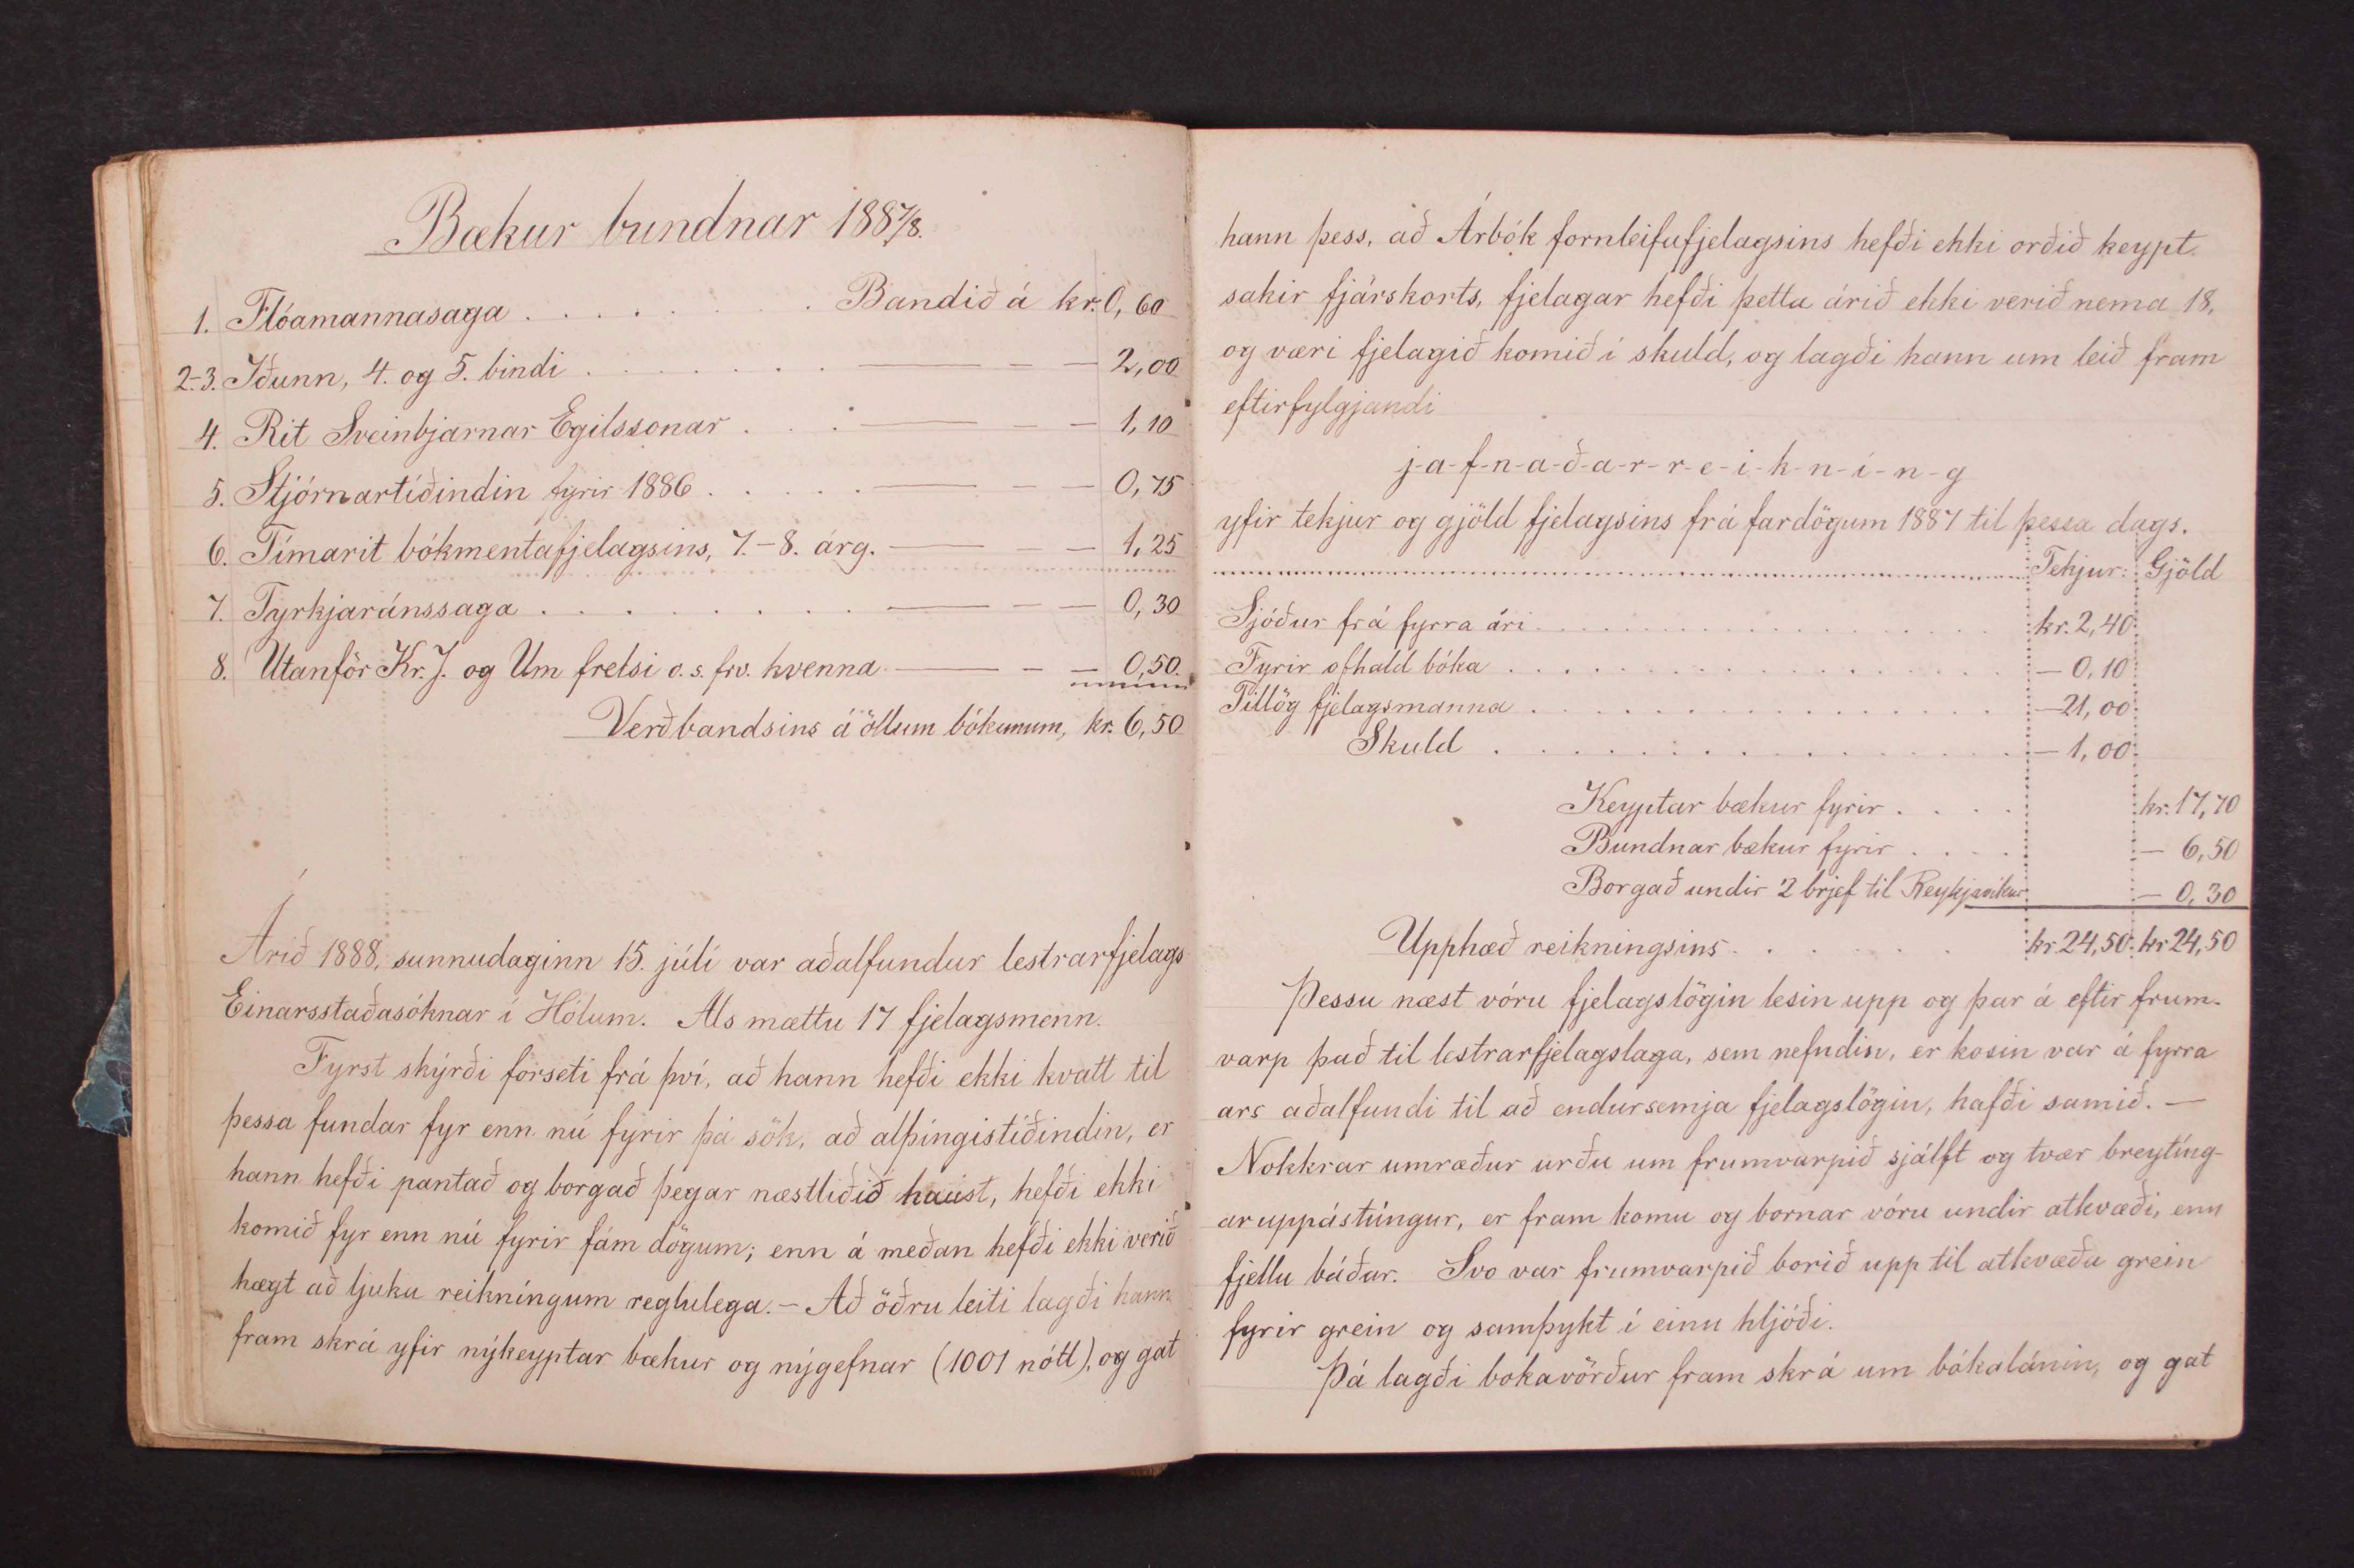 Bækur bundnar 1887/8.
1. Flóamannasaga . . . . . . . . Bandið á kr. 0,60
2-3. Iðunn, 4. og 5. bindi . . . . . . . . — — — 2,00
4. Rit Sveinbjarnar Egilssonar . . . — — — 1,10
5. Stjórnartíðindin fyrir 1886 . . . . . — — — 0,75
6. Tímarit bókmentafjelagsins, 7.-8. árg. — — — 1,25
7. Tyrkjaránssaga . . . . . . . . — — — 0,30
8. Utanför Kr. J. og Um frelsi o. s. frv. kvenna — — — 0,50.
Verð bandsins á öllum bókunum, kr. 6,50
Árið 1888, sunnudaginn 15. júlí var aðalfundur lestrarfjelags
Einarsstaðasóknar í Hólum. Als mættu 17 fjelagsmenn.
Fyrst skýrði forseti frá því, að hann hefði ekki kvatt til
þessa fundar fyr enn nú fyrir þá sök, að alþíngistíðindin, er
hann hefði pantað og borgað þegar næstliðið haust, hefði ekki
komið fyr enn nú fyrir fám dögum; enn á meðan hefði ekki verið
hægt að ljuka reikníngum reglulega. - Að öðru leiti lagði hann
fram skrá yfir nýkeyptar bækur og nýgefnar (1001 nótt), og gat
hann þess, að Árbók fornleifafjelagsins hefði ekki orðið keypt
sakir fjárskorts, fjelagar hefði þetta árið ekki verið nema 18,
og væri fjelagið komið í skuld, og lagði hann um leið fram
eftirfylgjandi
j-a-f-n-a-ð-a-r-r-e-i-k-n-í-n-g
yfir tekjur og gjöld fjelagsins frá fardögum 1887 til þessa dags.
Tekjur: Gjöld
Sjóður frá fyrra ári . . . . . . . . kr. 2,40
Fyrir ofhald bóka . . . . . . . . — 0,10
Tillög fjelagsmanna . . . . . . . . — 21,00
Skuld . . . . . . . . — 1,00
Keyptar bækur fyrir . . . . kr. 17,70
Bundnar bækur fyrir . . . . — 6,50
Borgað undir 2 brjef til Reykjavíkur — 0,30
Upphæð reikningsins . . . . . . kr 24,50 kr 24,50
Þessu næst vóru fjelagslögin lesin upp og þar á eftir frum-
varp það til lestrarfjelagslaga, sem nefndin, er kosin var á fyrra
ars aðalfundi til að endursemja fjelagslögin, hafði samið. —
Nokkrar umræður urðu um frumvarpið sjálft og tvær breytíng-
aruppástúngur, er fram komu og bornar vóru undir atkvæði, enn
fjellu báðar. Svo var frumvarpið borið upp til atkvæða grein
fyrir grein og samþykt í einu hljóði.
Þá lagði bokavörður fram skrá um bókalánin, og gat